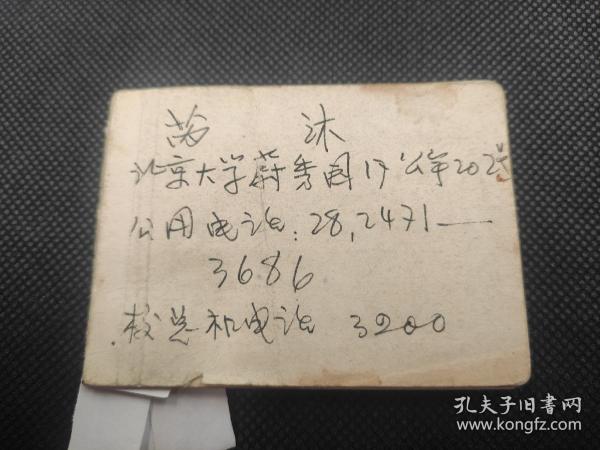 沐
北京大学蔚秀园17公寓202号
公用电话：28,2471—
3686
校总机电话 3200
孔夫子旧书网
www.kongfz.com